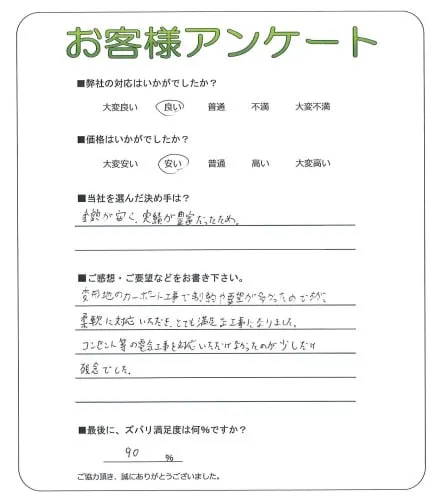 お客様アンケート
■弊社の対応はいかがでしたか?
大変良い 良い 普通 不満 大変不満
■価格はいかがでしたか?
大変安い 安い 普通 高い 大変高い
■当社を選んだ決め手は?
金額が安く、実績が豊富だったため。
■ご感想・ご要望などをお書き下さい。
変形地のカーポート工事で制約や要望が多かったのですが、
柔軟に対応いただき、とても満足な工事になりました。
コンセント等の電気工事を対応いただけなかったのが少しだけ
残念でした。
■最後に、ズバリ満足度は何%ですか?
90 %
ご協力頂き、誠にありがとうございました。